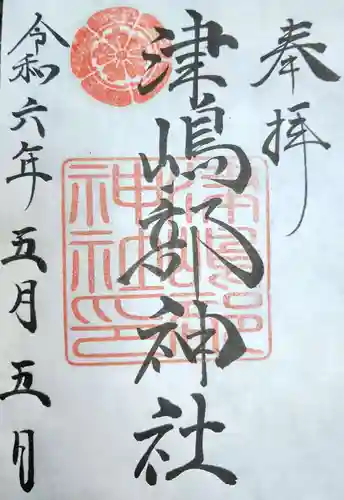 奉拝
津嶋部神社
令和六年五月五月
津嶋部神社印